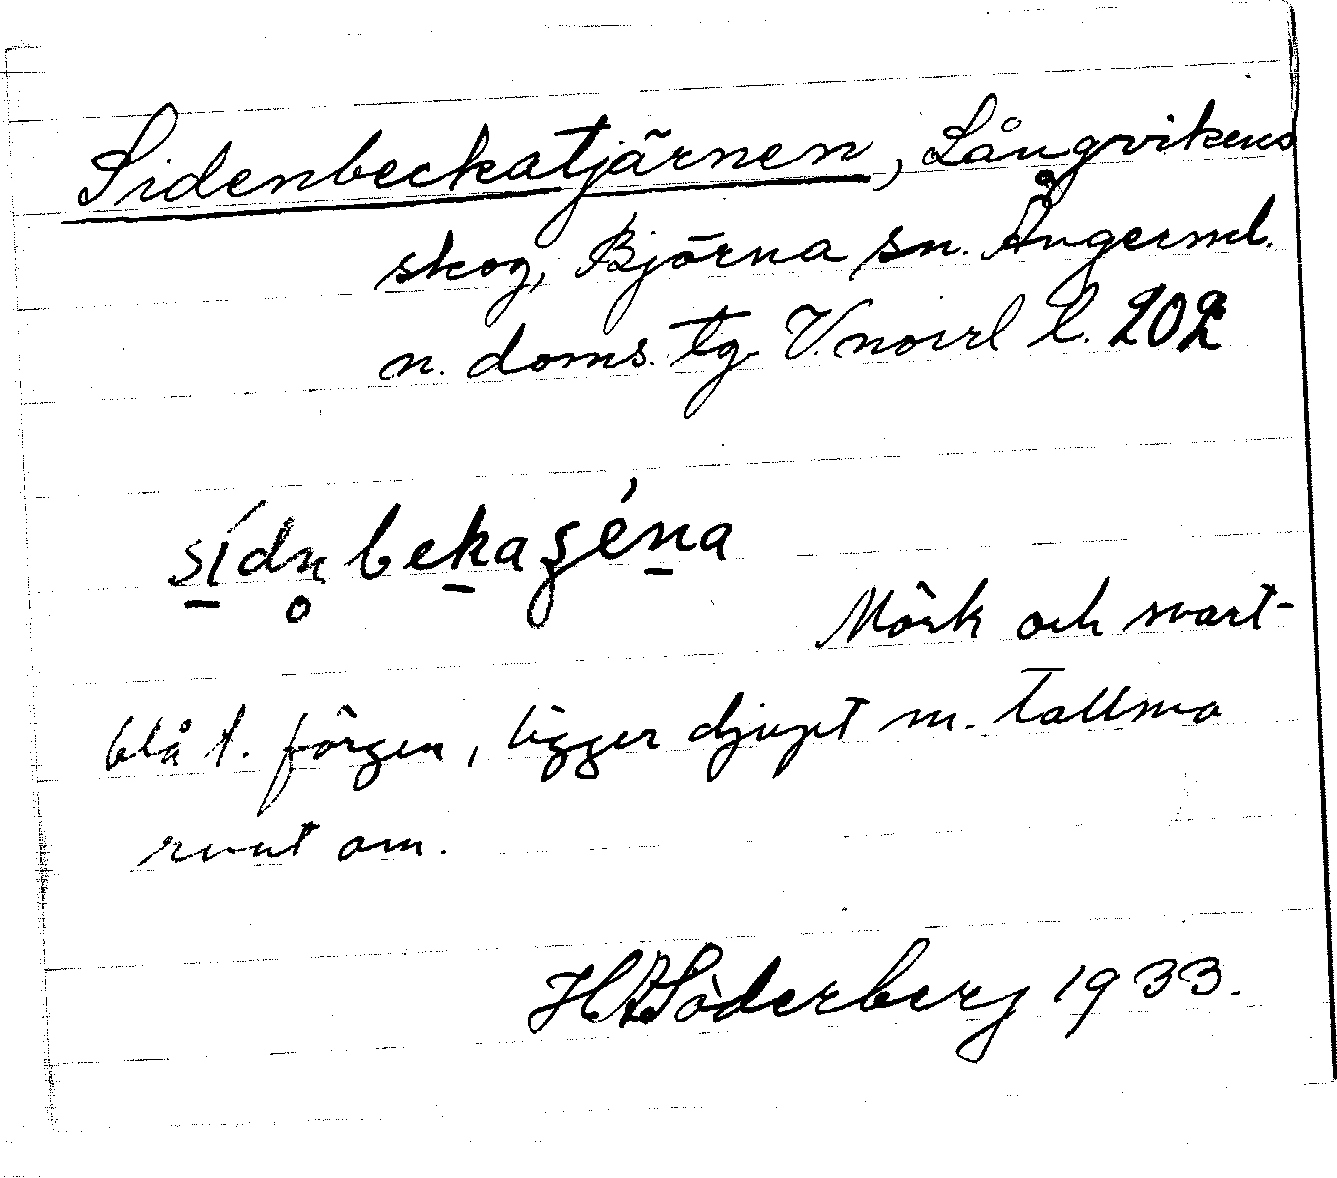 Sidenbeckatjärnen, Långvikens
skog, Björna sn. Ångerml.
n. doms. tg. V.norrl l. 202
sídn̥bekaʂéna
Mörk och svart-
blå t. färgen, ligger djupt m. tallmo
runt om.
HBSöderberg 1933.